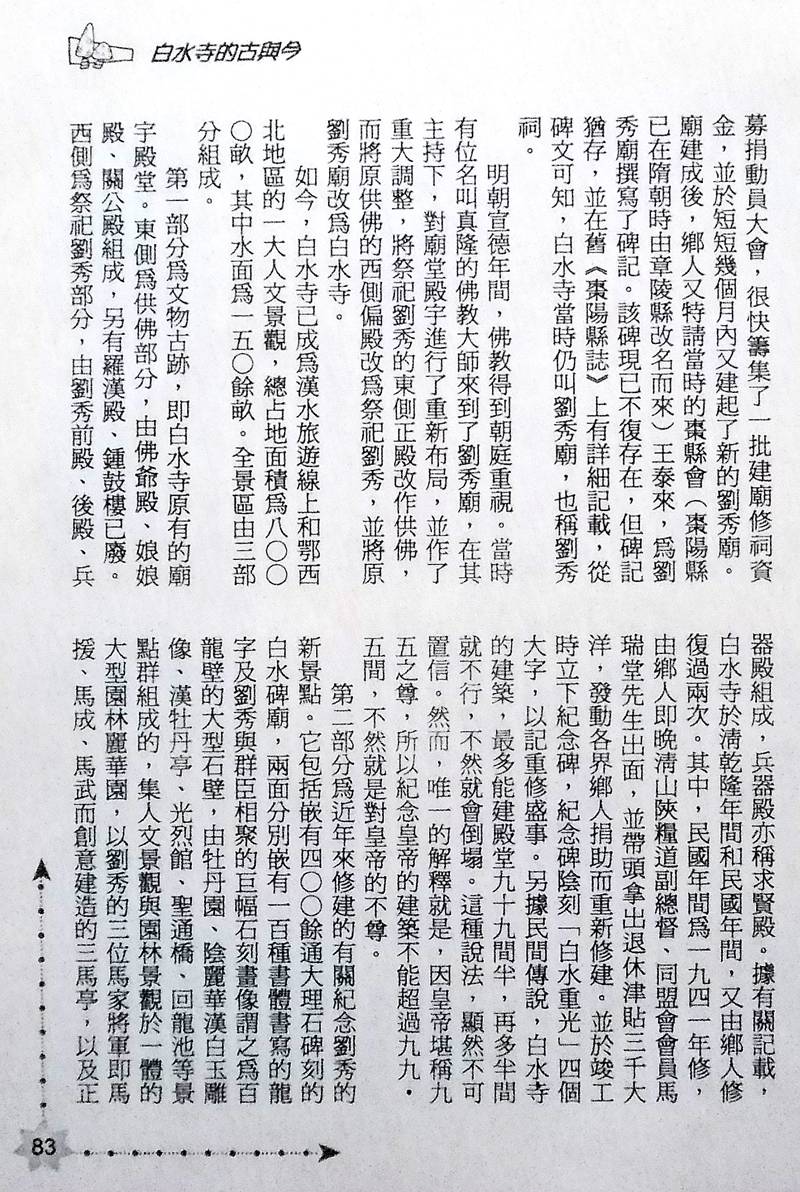 白水寺的古與今
募捐動員大會，很快籌集了一批建廟修祠資
金，並於短短幾個月內又建起了新的劉秀廟。
廟建成後，鄉人又特請當時的棗縣會（棗陽縣
已在隋朝時由章陵縣改名而來）王泰來，爲劉
秀廟撰寫了碑記。該碑現已不復存在，但碑記
猶存，並在舊《棗陽縣誌》上有詳細記載，從
碑文可知，白水寺當時仍叫劉秀廟，也稱劉秀
祠。
明朝宣德年間，佛教得到朝庭重視。當時
有位名叫真隆的佛教大師來到了劉秀廟，在其
主持下，對廟堂殿宇進行了重新布局，並作了
重大調整，將祭祀劉秀的東側正殿改作供佛，
而將原供佛的西側偏殿改爲祭祀劉秀，並將原
劉秀廟改爲白水寺。
如今，白水寺已成爲漢水旅遊線上和鄂西
北地區的一大人文景觀，總占地面積爲八〇〇
〇畝，其中水面爲一五〇餘畝。全景區由三部
分組成。
第一部分爲文物古跡，即白水寺原有的廟
宇殿堂。東側爲供佛部分，由佛爺殿、娘娘
殿、關公殿組成，另有羅漢殿、鍾鼓樓已廢。
西側爲祭祀劉秀部分，由劉秀前殿、後殿、兵
器殿組成，兵器殿亦稱求賢殿。據有關記載，
白水寺於清乾隆年間和民國年間，又由鄉人修
復過兩次。其中，民國年間爲一九四一年修，
由鄉人即晚清山陝糧道副總督、同盟會會員馬
瑞堂先生出面，並帶頭拿出退休津貼三千大
洋，發動各界鄉人捐助而重新修建。並於竣工
時立下紀念碑，紀念碑陰刻「白水重光」四個
大字，以記重修盛事。另據民間傳說，白水寺
的建築，最多能建殿堂九十九間半，再多半間
就不行，不然就會倒塌。這種說法，顯然不可
置信。然而，唯一的解釋就是，因皇帝堪稱九
五之尊，所以紀念皇帝的建築不能超過九九·
五間，不然就是對皇帝的不尊。
第二部分爲近年來修建的有關紀念劉秀的
新景點。它包括嵌有四〇〇餘通大理石碑刻的
白水碑廟，兩面分別嵌有一百種書體書寫的龍
字及劉秀與群臣相聚的巨幅石刻畫像謂之爲百
龍壁的大型石壁，由牡丹園、陰麗華漢白玉雕
像、漢牡丹亭、光烈館、聖通橋、回龍池等景
點群組成的，集人文景觀與園林景觀於一體的
大型園林麗華園，以劉秀的三位馬家將軍即馬
援、馬成、馬武而創意建造的三馬亭，以及正
83